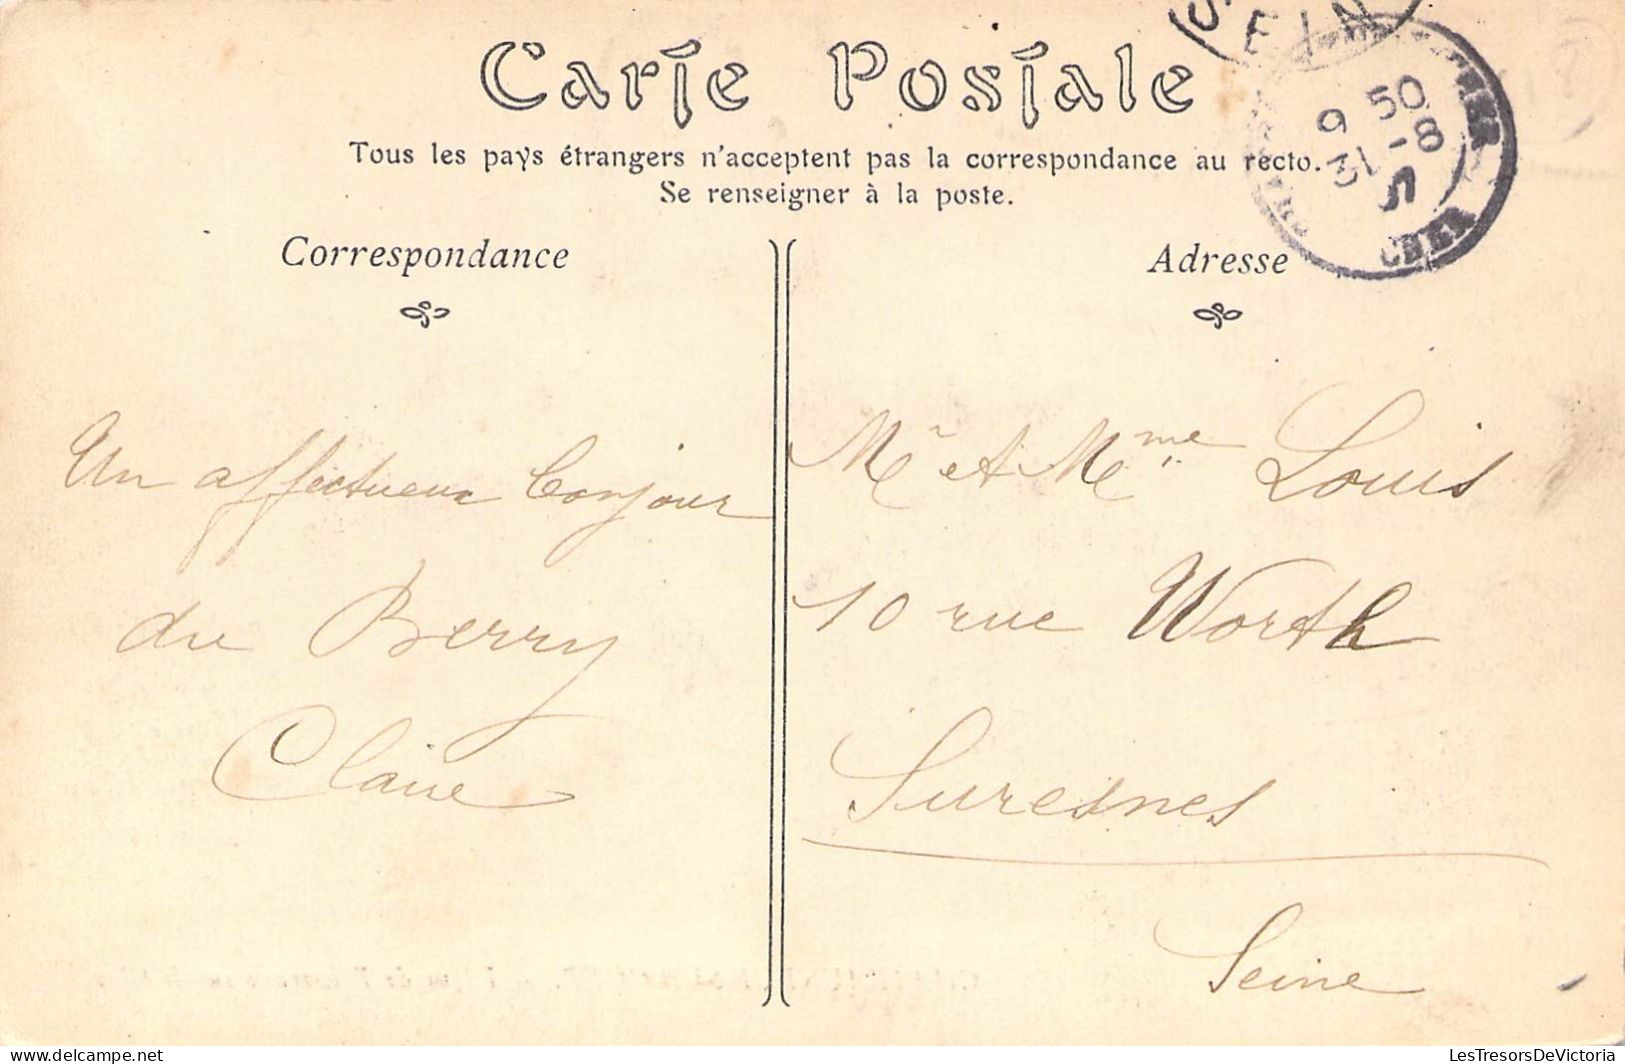 Carte Postale
Tous les pays étrangers n'acceptent pas la correspondance au recto.
Se renseigner à la poste.
Correspondance
Adresse
Un affectueux bonjour
du Berry
Claire
Mr et Mme Louis
10 rue Worth
Suresnes
Seine
SEIN
9 50
31 -8
CHER
LesTresorsDeVictoria